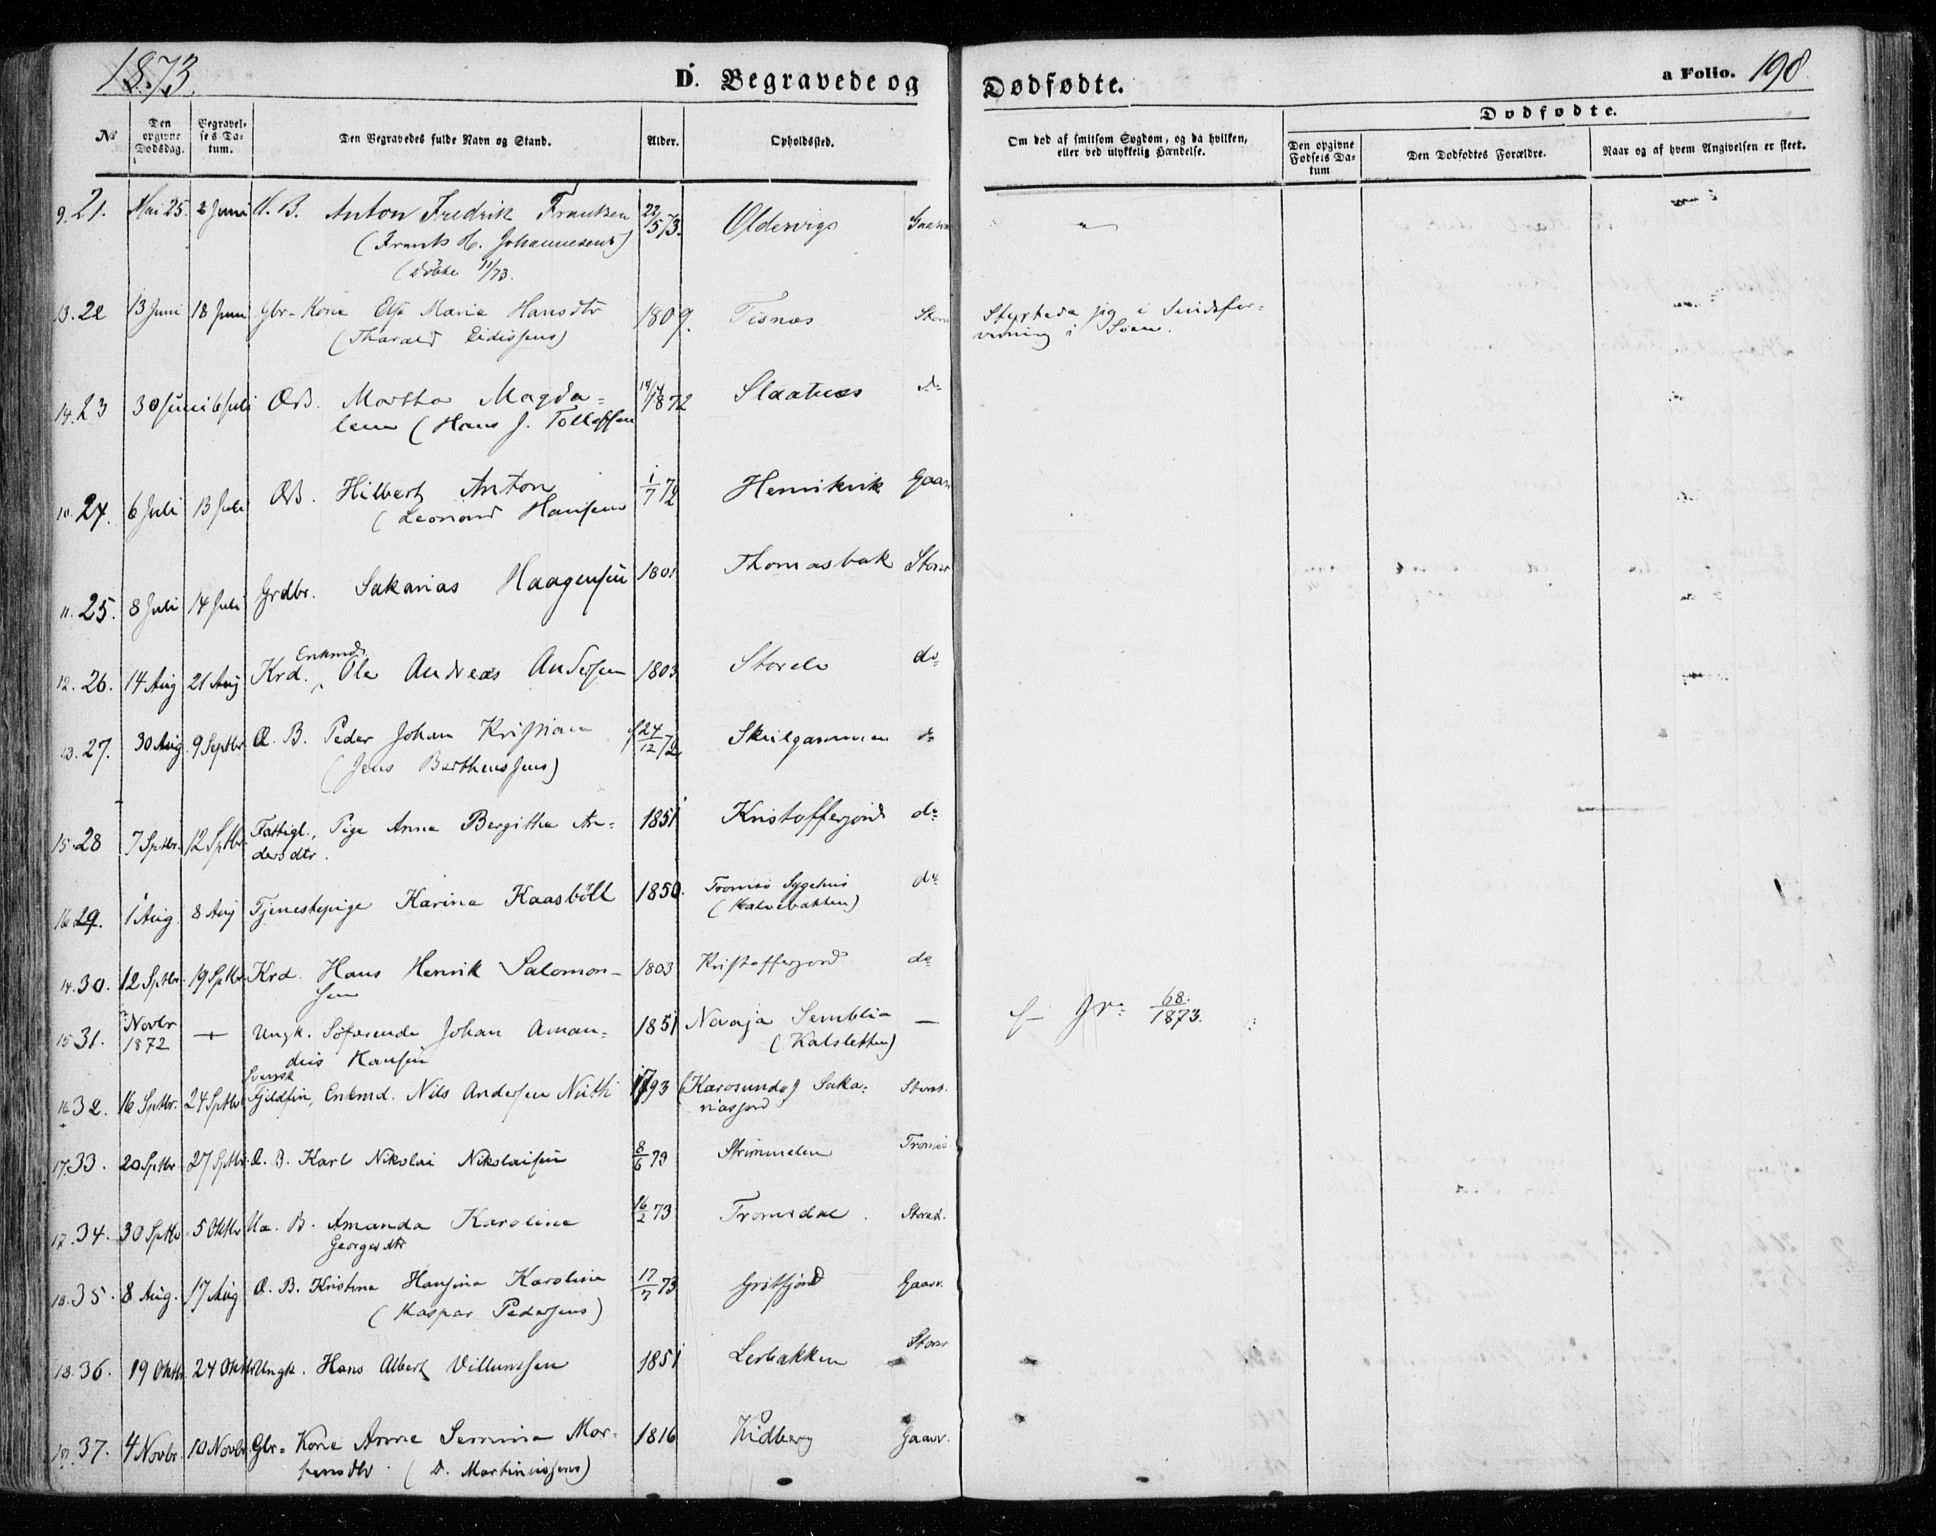 1873.
D. Begravede og Dødfødte.
a Folio. 198.
Dødfødte.
No
Den opgivne Dødsdag.
Begravelses Datum.
Den Begravedes fulde Navn og Stand.
Alder.
Opholdssted.
Om død af smitsom Sygdom, og da hvilken, eller ved ulykkelig Hændelse.
Den opgivne Fødsels Datum
Den Dødfødtes Forældre.
Naar og af hvem Angivelsen er skeet.
9. 21. Mai 25. 2 Juni U. B. Anton Fredrik Frantzen 22/5 73. Oldervigs
(Frants H. Johannesens)
(Døbte 11/73.
13. 22 13 Juni 18 Juni Gbr-Kone Else Maria Hansdtr 1809. Tisnæs Stors
Styrtede sig i Sindsfor-
(Tharald Eidissens)
virring i Søen.
14. 23 30 Juni 6 Juli ÆB. Martha Magda- 14/4 1872 Slaatnes do
lena (Hans J. Tollefsen
10. 24. 6 Juli 13 Juli ÆB. Hilbert Anton 1/7 72 Henrikvik Gaasv
(Leonard Hansens
11. 25. 8 Juli 14 Juli Grdbr. Sakarias Haagensen 1801 Thomasbak Storsv
Enkmd.
12. 26. 14 Aug 21 Aug Krd. Ole Andreas Andersen 1803 Storelv do
13. 27. 30 Aug 9 Septbr. Æ. B. Peder Johan Kristian f 24/12 72 Skulgammen do
(Jens Berthenssens)
15. 28 7 Sptbr. 12 Sptbr. Fattigl., Pige Anna Bergitha An- 1851 Kristofferjord do
dersdtr.
16. 29. 1 Aug 8 Aug Tjenestepige Karina Kaasbøll 1850. Tromsø Sygehus do
(Halvebakken)
14. 30. 12 Sptbr. 19 Sptbr. Krd. Hans Henrik Salomon- 1803 Kristofferjord do
sen
15. 31. Novbr 1872 — Ungk. Søfarende Johan Aman- 1851 Novaja Semblia —
(Kalsletten)
68./1873.
dus Hansen
Svensk
16. 32. 16 Sptbr. 24 Sptbr. Fjeldfin, Enkmd. Nils Andersen Nutti 1793 (Karosundo) Saka- Storst.
riasjord
17. 33. 20 Sptbr. 27 Sptbr. Æ. B. Karl Nikolai Nikolaisen 8/6 73 Strimmelen Tromsø
17. 34. 30 Sptbr 5 Oktbr Ua. B. Amanda Karoline 16/2 73 Tromsdal. Storsd.
Georgesdtr
18. 35. 8 Aug. 17 Aug Æ. B. Kristina Hansina Karoline 17/7 73 Gritfjord Gaasv.
(Kaspar Pedersens)
18. 36. 19 Oktbr. 24 Oktbr Ungk. Hans Albert Villumsen 1851 Lerbakken Storsv
19. 37. 4 Novbr. 10 Novbr. Gbr-Kone Anne Semina Mor- 1816 Kidberg Gaasv.
tensdtr (D. Martinussens)